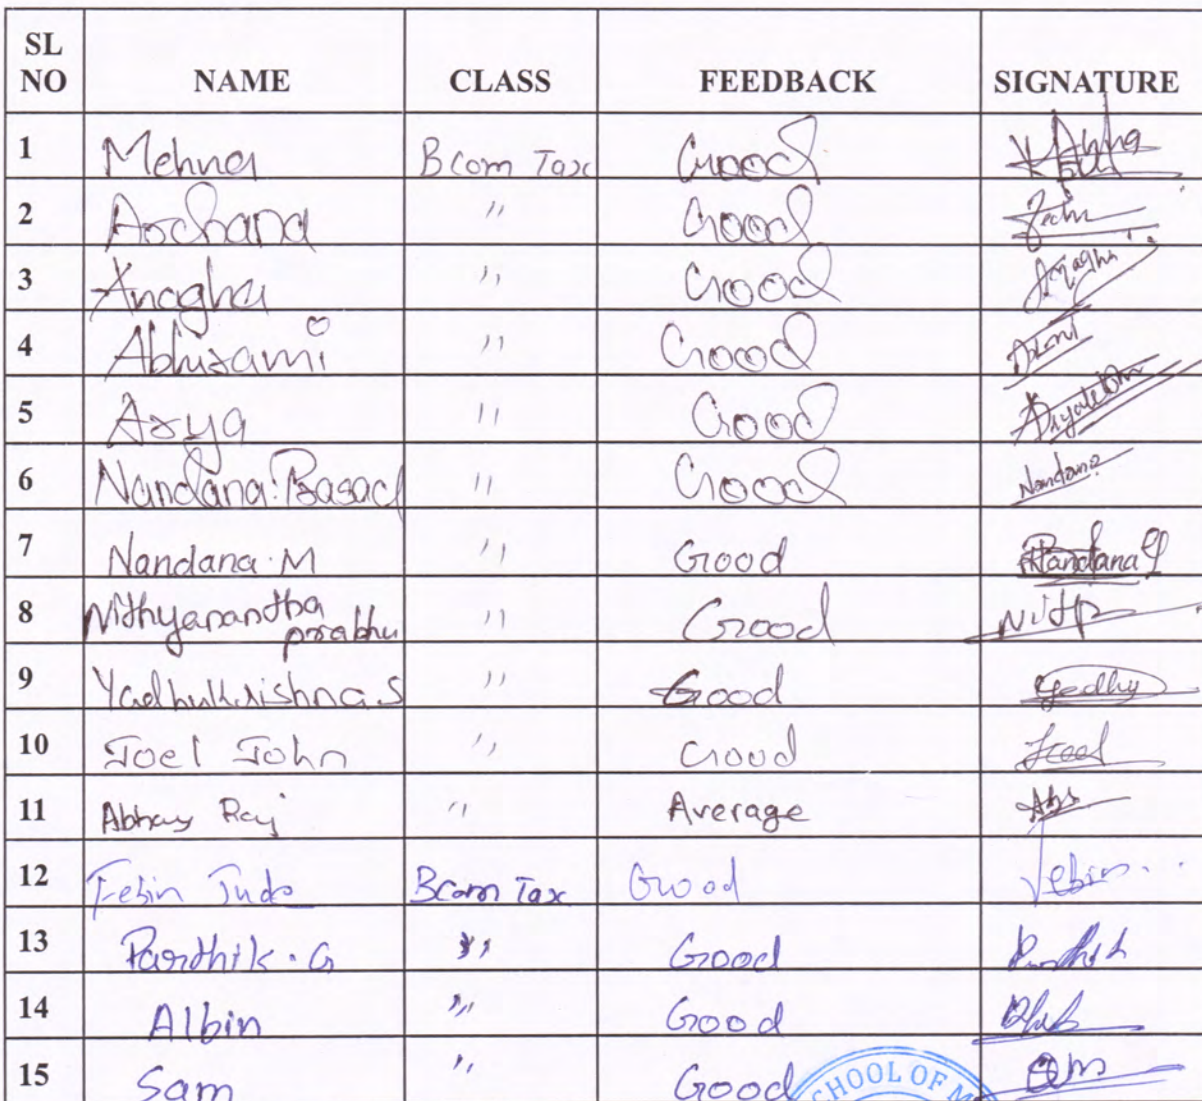 SL NO NAME CLASS FEEDBACK SIGNATURE
1 Mehna Bcom Tax Good
2 Archana " Good
3 Anagha " Good Anagha
4 Abhirami " Good
5 Arya " Good
6 Nandana Prasad " Good Nandana
7 Nandana M " Good Nandana
8 Nithyanantha prabhu " Good
9 Yadhukrishna.S " Good Yadhu
10 Joel John " Good Joel
11 Abhay Raj " Average
12 Febin Jude Bcom Tax Good Febin
13 Parthik.G " Good
14 Albin " Good
15 Sam " Good
SCHOOL OF M